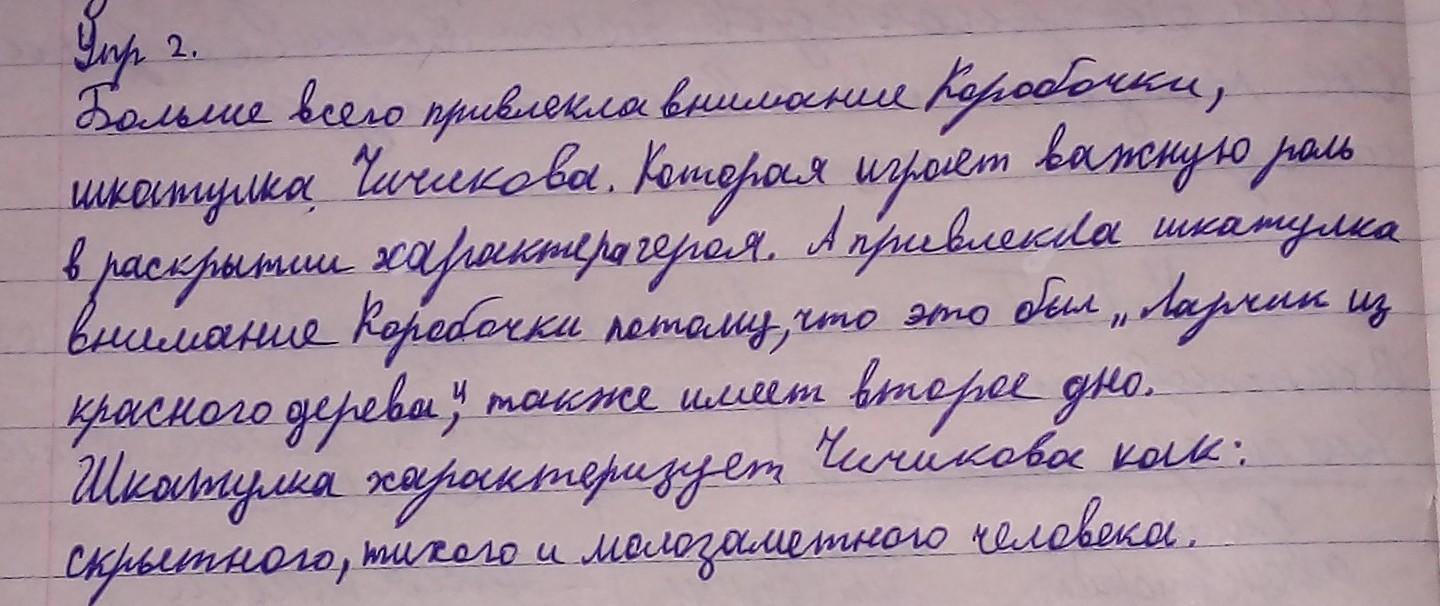 Упр 2.
Больше всего привлекла внимание Коробочки,
шкатулка Чичикова. Которая играет важную роль
в раскрытии характера героя. А привлекла шкатулка
внимание Коробочки потому, что это был „Ларчик из
красного дерева", также имеет второе дно.
Шкатулка характеризует Чичикова как:
скрытного, тихого и малозаметного человека.